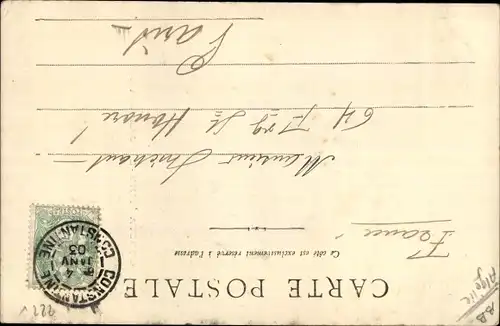 CARTE POSTALE
Ce côté est exclusivement réservé à l'adresse
France
Monsieur
64 Fbg St Honoré
Paris
CONSTANTINE
4
JANV
03
CONSTANTINE
Algérie